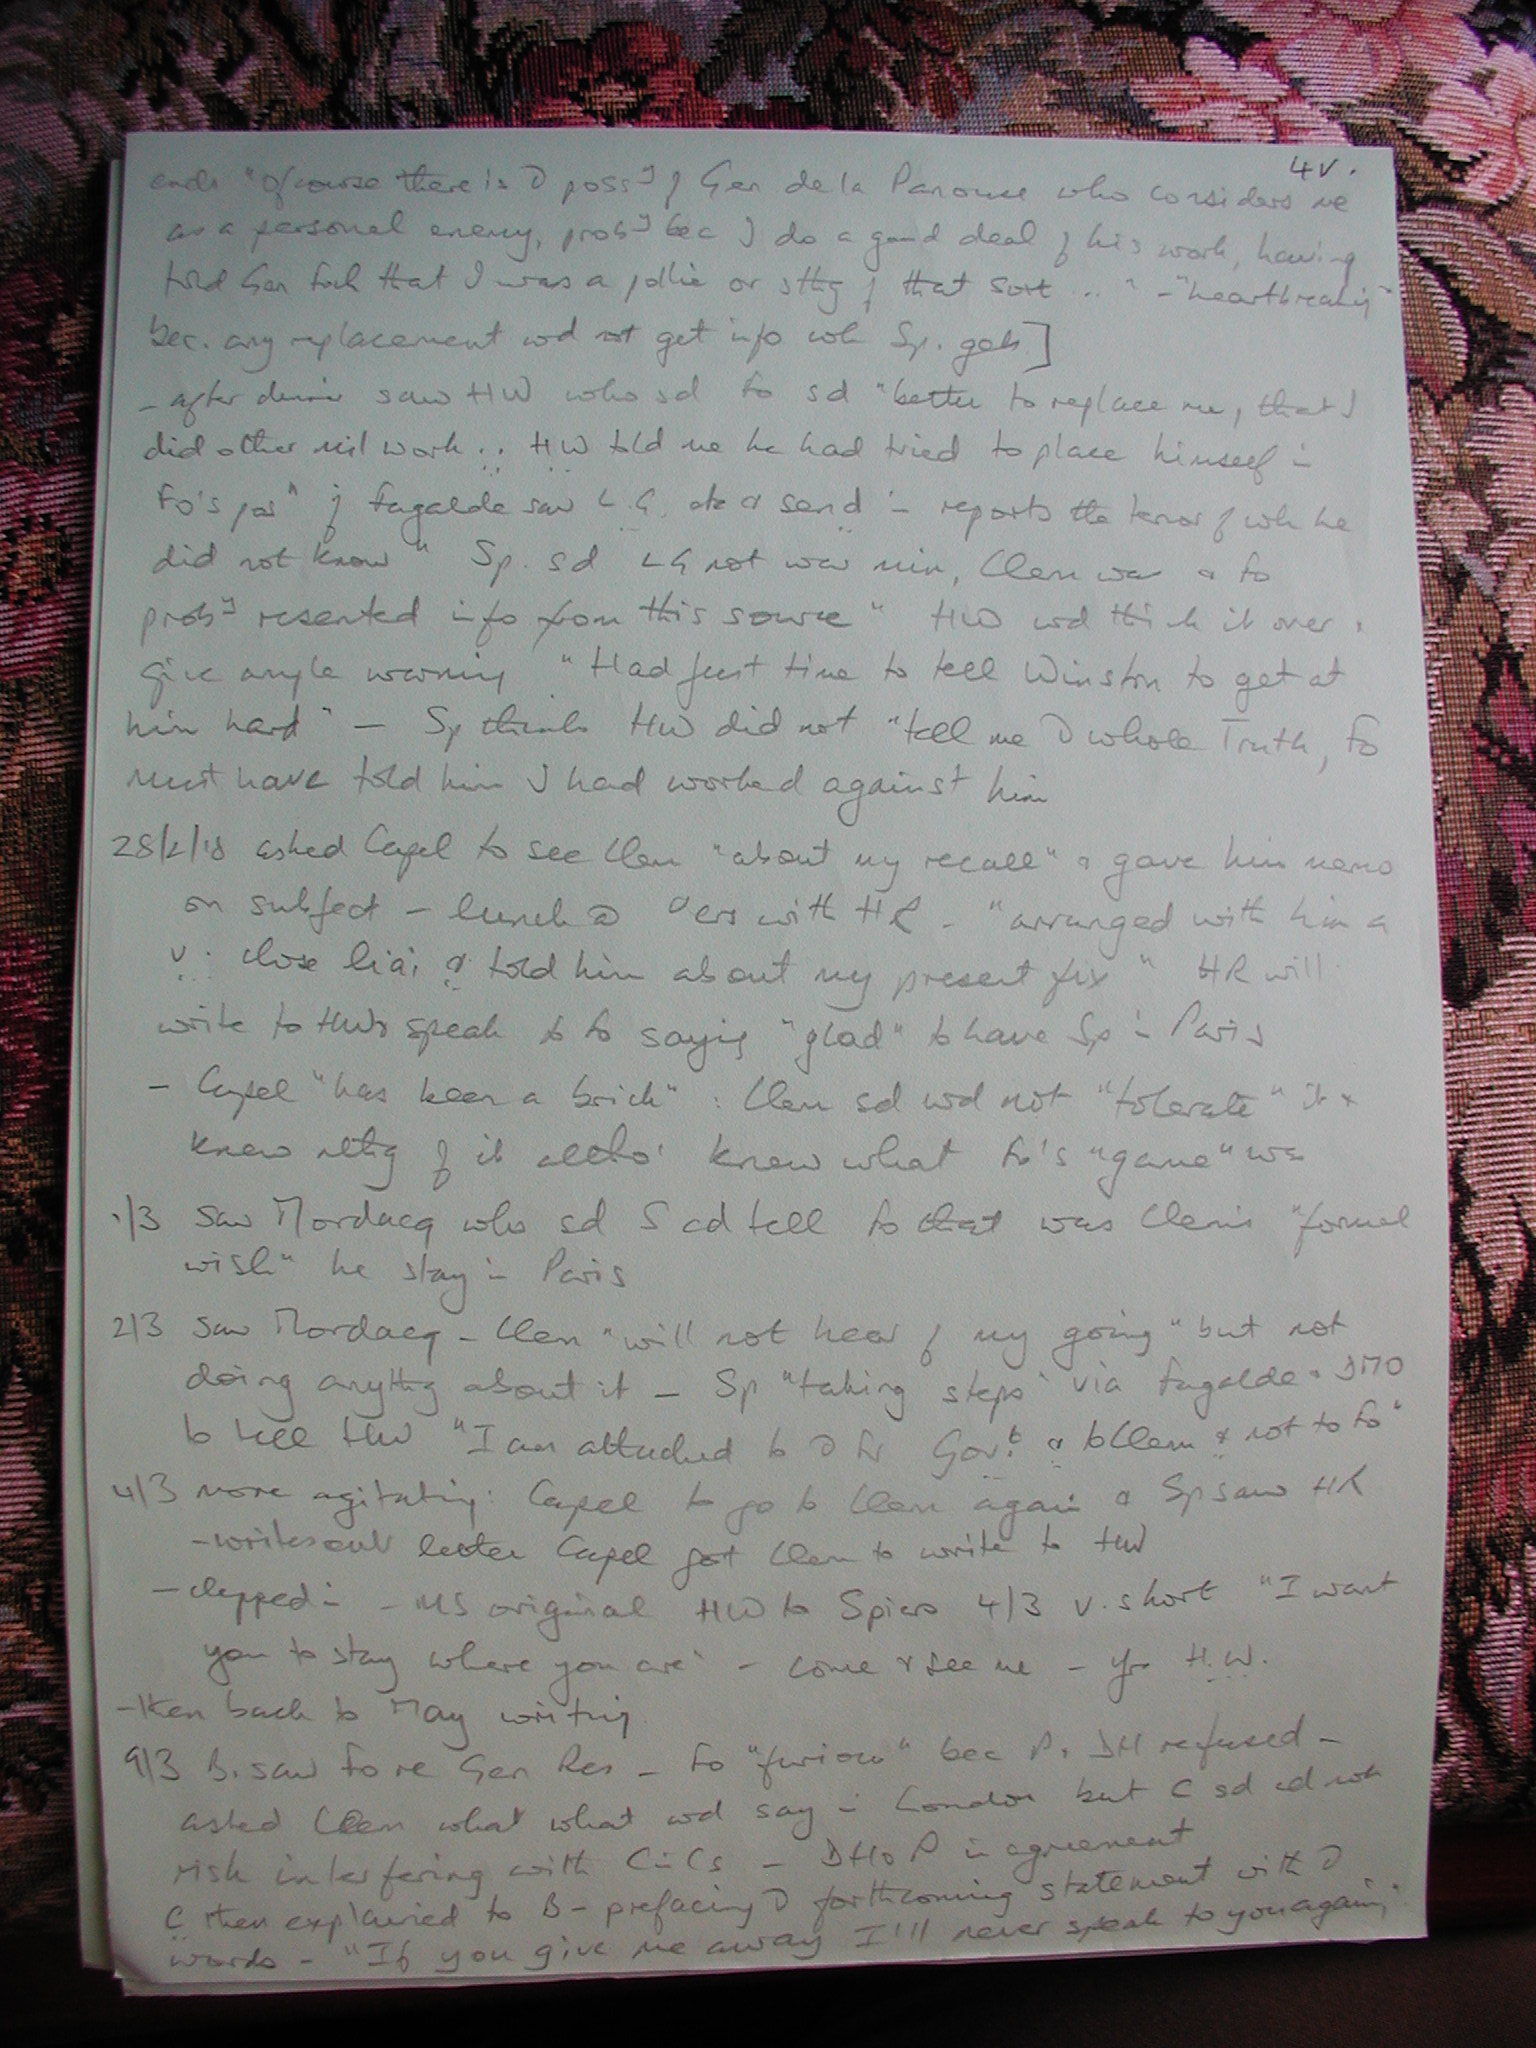 4v.
ends "Of course there is  poss^y of Gen de la Panouse who considers me
as a personal enemy, prob^y bec I do a good deal of his work, having
told Gen Foch that I was a  or sthg of that sort ..." - "heartbreaking"
bec. any replacement wd not get info wh Sp. gets]
- after dinner saw HW who sd Fo sd "better to replace me, that I
did other mil work .. HW told me he had tried to place himself in
Fo's pos^n if Fagalde saw L.G. etc & send in reports the tenor of wh he
did not know" Sp. sd LG not war min, Clem was & Fo
prob^y resented info from this source" HW wd think it over &
give ample warning "Had just time to tell Winston to get at
him hard" - Sp thinks HW did not "tell me  whole Truth, Fo
must have told him I had worked against him
28/2/18 asked Capel to see Clem "about my recall" & gave him memo
on subject - lunch  with HR - "arranged with him a
v. close liai & told him about my present fix" HR will
write to HW & speak to Fo saying "glad" to have Sp in Paris
- Capel "has been a brick" : Clem sd wd not "tolerate" it &
knew nthg of it altho' knew what Fo's "game" was
1/3 saw Mordacq who sd S cd tell Fo that was Clem's "formal
wish" he stay in Paris
2/3 saw Mordacq - Clem "will not hear of my going" but not
doing anythg about it - Sp "taking steps" via Fagalde & DMO
to tell HW "I am attached to  Fr Gov^t & to Clem & not to Fo"
4/3 more agitating: Capel to go to Clem again & Sp saw HR
- writes out letter Capel got Clem to write to HW
- clipped in - MS original HW to Spiers 4/3 v. short "I want
you to stay where you are" - come & see me - yrs H.W.
- then back to May writing
9/3 B. saw Fo re Gen Res - Fo "furious" bec P. & DH refused -
asked Clem what what wd say in London but C sd cd not
risk interfering with CinCs - DH & P in agreement
C then explained to B - prefacing  forthcoming statement with
words - "If you give me away I'll never speak to you again;